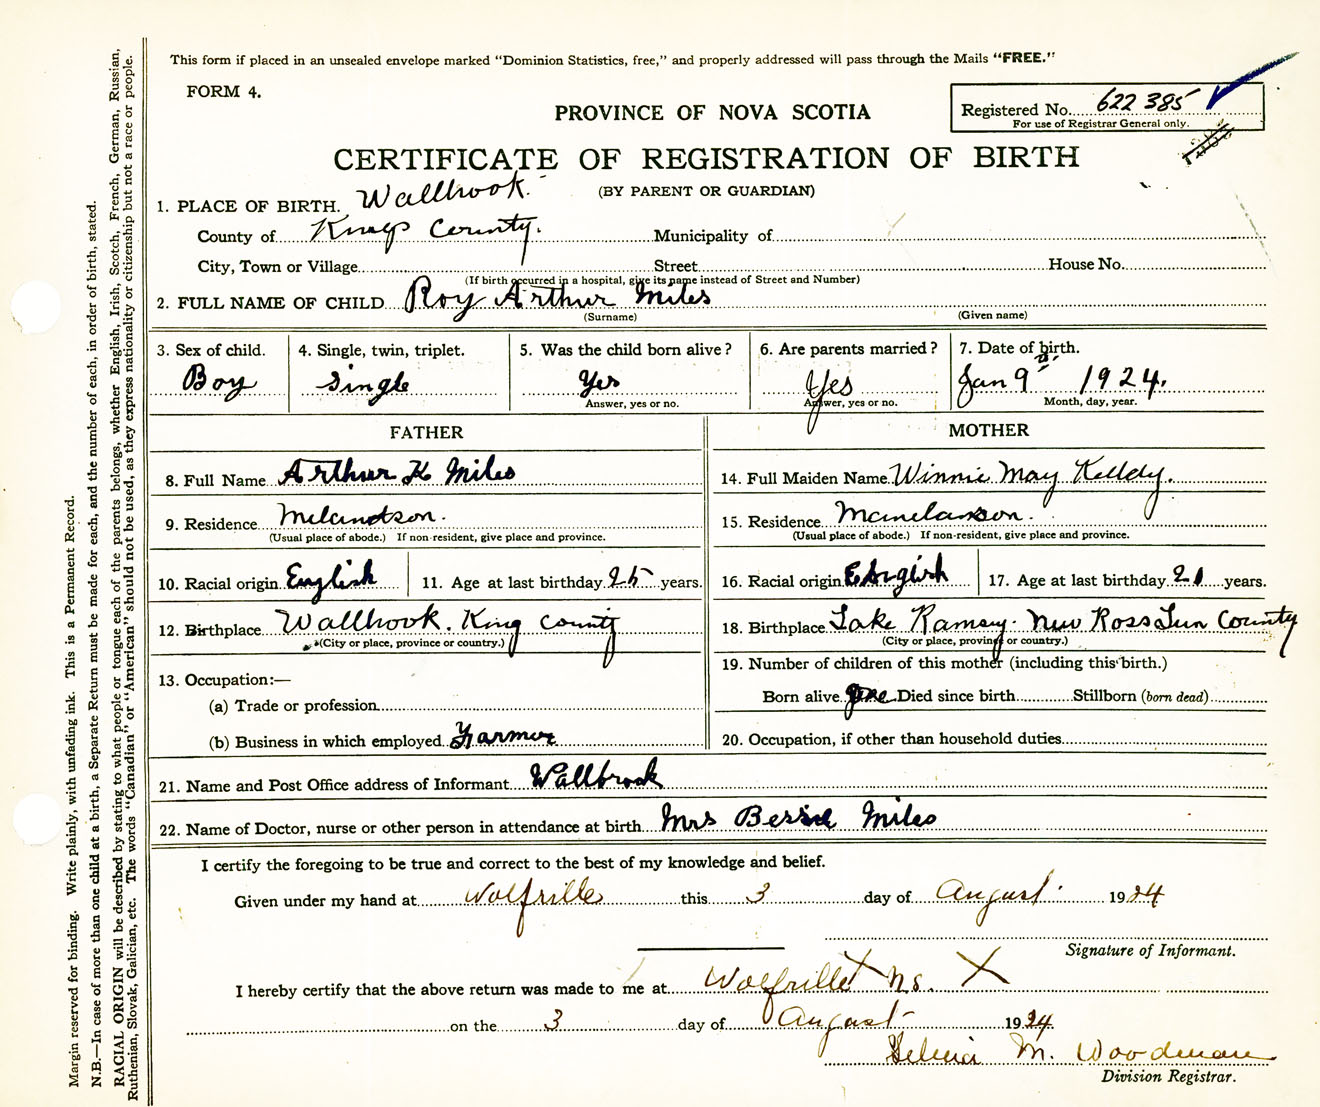 This form if placed in an unsealed envelope marked "Dominion Statistics, free," and properly addressed will pass through the Mails "FREE."
FORM 4.
PROVINCE OF NOVA SCOTIA
Registered No. 622 385
For use of Registrar General only.
CERTIFICATE OF REGISTRATION OF BIRTH
(BY PARENT OR GUARDIAN)
1. PLACE OF BIRTH. Wallbrook.
County of Kings County. Municipality of
City, Town or Village Street House No.
(If birth occurred in a hospital, give its name instead of Street and Number)
2. FULL NAME OF CHILD Roy Arthur Miles
(Surname) (Given name)
3. Sex of child. 4. Single, twin, triplet. 5. Was the child born alive? 6. Are parents married? 7. Date of birth.
Boy Single Yes Yes Jan 9th 1924.
Answer, yes or no. Answer, yes or no. Month, day, year.
FATHER MOTHER
8. Full Name Arthur K Miles 14. Full Maiden Name Winnie May Kelldy.
9. Residence 15. Residence
(Usual place of abode.) If non-resident, give place and province. (Usual place of abode.) If non-resident, give place and province.
10. Racial origin English 11. Age at last birthday 25 years. 16. Racial origin English 17. Age at last birthday 21 years.
12. Birthplace Wallbrook. King County 18. Birthplace Lake Ramsey. New Ross Lun County
(City or place, province or country.) (City or place, province or country.)
13. Occupation:— 19. Number of children of this mother (including this birth.)
(a) Trade or profession Born alive One Died since birth Stillborn (born dead)
(b) Business in which employed Farmer 20. Occupation, if other than household duties
21. Name and Post Office address of Informant Wallbrook
22. Name of Doctor, nurse or other person in attendance at birth Mrs Bessie Miles
I certify the foregoing to be true and correct to the best of my knowledge and belief.
Given under my hand at Wolfville this 3 day of August 1924
Signature of Informant.
I hereby certify that the above return was made to me at Wolfville N.S. X
on the 3 day of August 1924
M. Woodman
Division Registrar.
Margin reserved for binding. Write plainly, with unfading ink. This is a Permanent Record.
N.B.—In case of more than one child at a birth, a Separate Return must be made for each, and the number of each, in order of birth, stated.
RACIAL ORIGIN will be described by stating to what people or tongue each of the parents belongs, whether English, Irish, Scotch, French, German, Russian,
Ruthenian, Slovak, Galician, etc. The words "Canadian" or "American" should not be used, as they express nationality or citizenship but not a race or people.